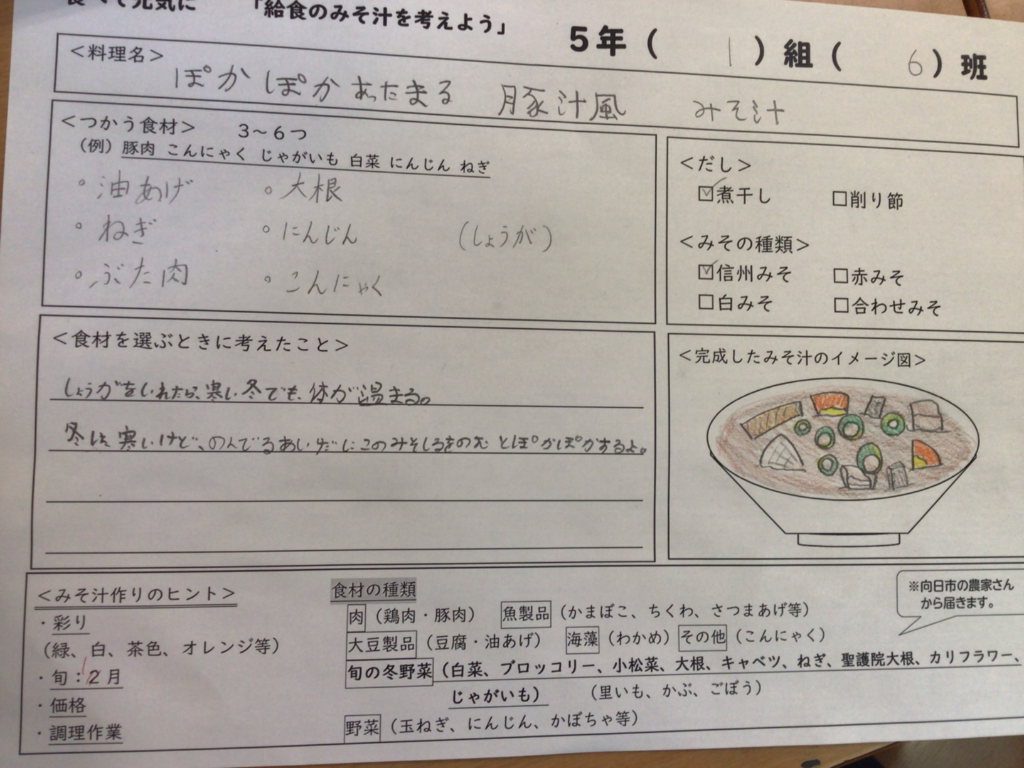 食べて元気に 「給食のみそ汁を考えよう」
5年( 1 )組( 6 )班
<料理名>
ぽかぽかあったまる 豚汁風 みそ汁
<つかう食材> 3～6つ
(例)豚肉 こんにゃく じゃがいも 白菜 にんじん ねぎ
・油あげ ・大根
・ねぎ ・にんじん (しょうが)
・ぶた肉 ・こんにゃく
<だし>
☑煮干し □削り節
<みその種類>
☑信州みそ □赤みそ
□白みそ □合わせみそ
<食材を選ぶときに考えたこと>
しょうがをいれたら、寒い冬でも、体が温まる。
冬は、寒いけど、のんでるあいだにこのみそしるをのむとぽかぽかするよ。
<完成したみそ汁のイメージ図>
<みそ汁作りのヒント>
・彩り
(緑、白、茶色、オレンジ等)
・旬:12月
・価格
・調理作業
食材の種類
肉(鶏肉・豚肉) 魚製品(かまぼこ、ちくわ、さつまあげ等)
大豆製品(豆腐・油あげ) 海藻(わかめ) その他(こんにゃく)
旬の冬野菜(白菜、ブロッコリー、小松菜、大根、キャベツ、ねぎ、聖護院大根、カリフラワー、
じゃがいも) (里いも、かぶ、ごぼう)
野菜(玉ねぎ、にんじん、かぼちゃ等)
※向日市の農家さん
から届きます。